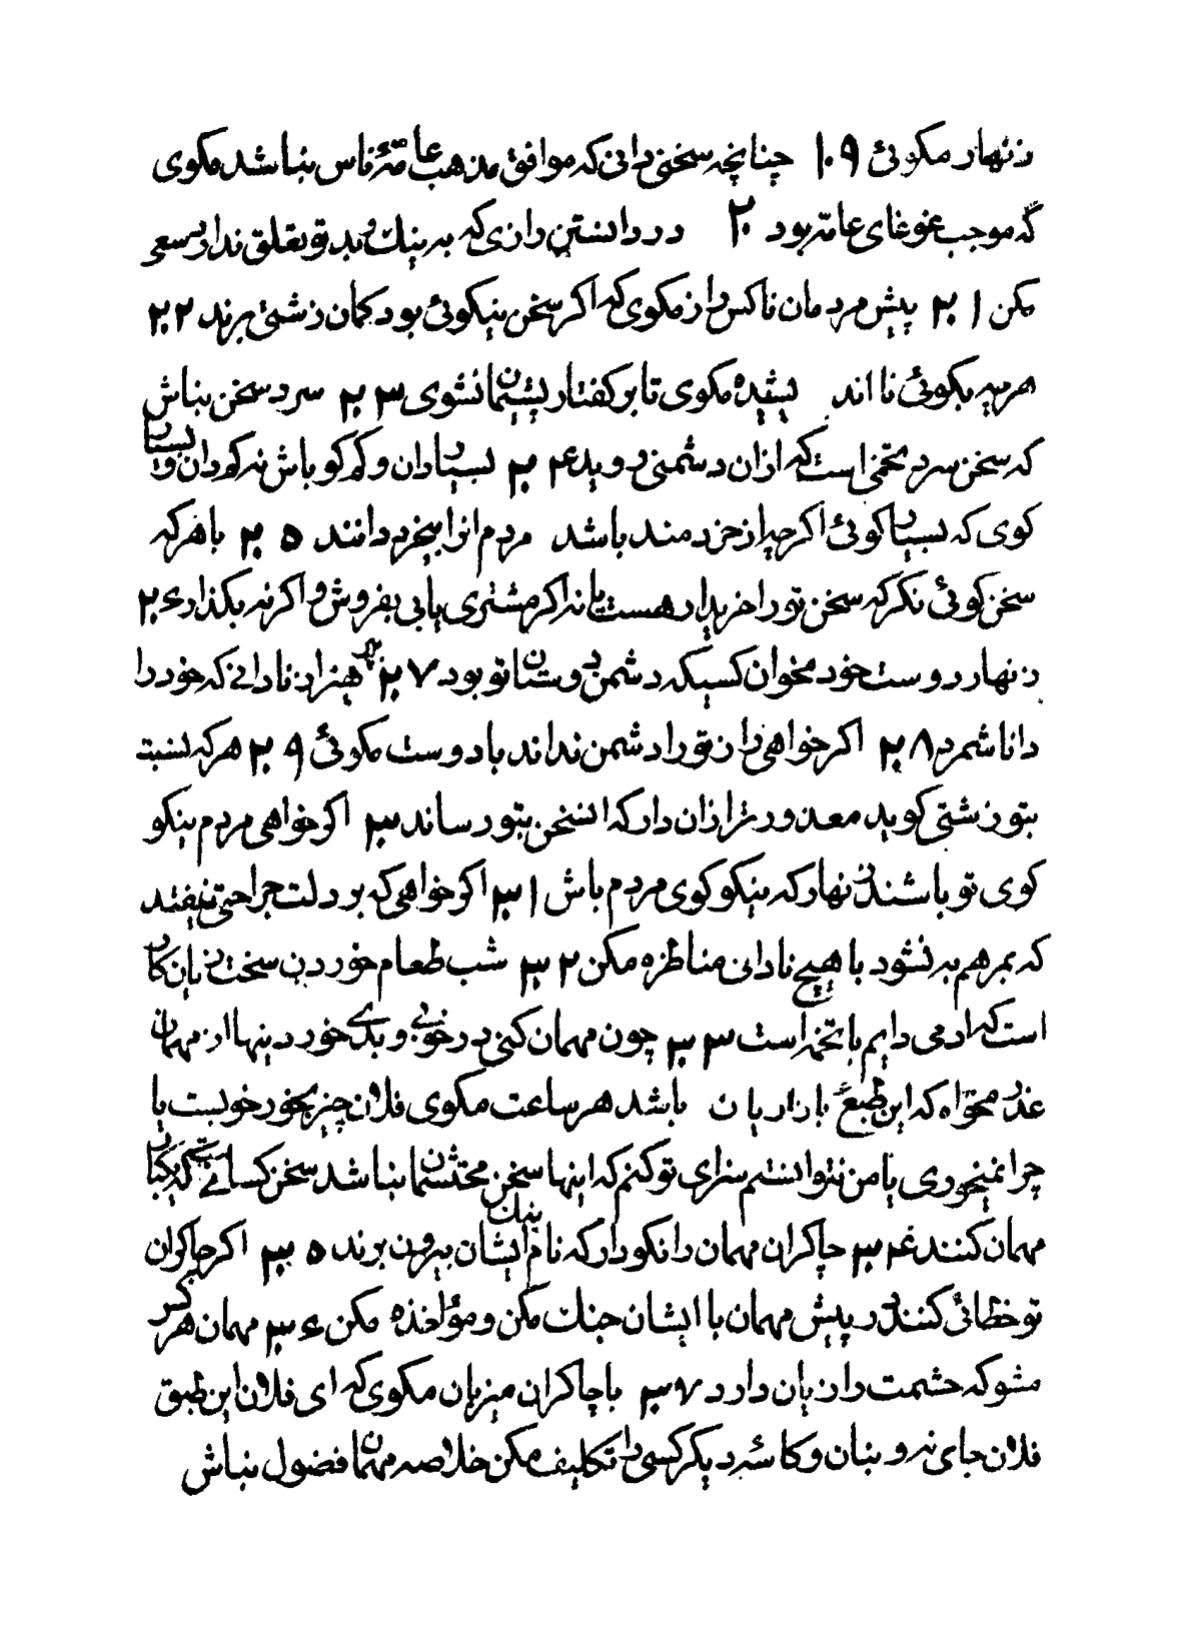 زنهار مکوئ ۱۰۹ چنانچه سخنی دانی که موافق مذهب عامّهٔ ناس نباشد مکوی
که موجب غوغای عامه بود ۲۰ در دانستن رازی که به نیك و بد تو تعلق ندارد سعی
مکن ۲۰۱ پیش مردمان ناکس راز مکوی که اکر سخن نیکوئی بود کمان زشتی برند ۲۰۲
هرچه بکوئی نا اند یشیده مکوی تا بر کفتار پشیمان نشوی ۲۰۳ سرد سخن نباش
که سخن سرد تخمی است که ازان دشمنی روید ۲۰۴ بسیار دان و کم کو باش نه کم دان و بسیار
کوی که بسیار کوئ اکر چه از خردمند باشد مردم انرا بیخرد دانند ۲۰۵ باهرکه
سخن کوئی نکر که سخن تو را خریدار هست یا نه اکر مشتری یابی بفروش و اکر نه بکذار ۲۰۶
زنهار دوست خود مخوان کسیکه دشمن دوستان تو بود ۲۰۷ بپرهیز از نادانے که خود را
دانا شمرد ۲۰۸ اکر خواهی راز تورا دشمن نداند با دوست مکوئ ۲۰۹ هرکه نسبت
بتو زشتی کوید معذورتر ازان دار که انسخن بتو رساند ۳۰ اکر خواهی مردم نیکو
کوی تو باشند زنهار که نیکو کوی مردم باش ۳۰۱ اکر خواهی که بر دلت جراحتی نیفتد
که بمرهم به نشود با هیچ نادانی مناظره مکن ۳۰۲ شب طعام خوردن سخت زیان کار
است که ادمی دایم با تخمه است ۳۰۳ چون مهمان کنی در خوبی و بدے خوردنیها از مهمان
عذر مخواه که این طبع بازاریان باشد هر ساعت مکوی فلان چیز بخور خوبست یا
چرا نمیخوری یا من نتوانستم سزای تو کنم که اینها سخن محتشمان نباشد سخن کسانے است که یکبار
مهمان کنند ۳۰۴ چاکران مهمان را نکو دار که نام نیك ایشان بیرون برند ۳۰۵ اکر چاکران
تو خطائی کنند در پیش مهمان با ایشان جنك مکن و مؤاخذه مکن ۳۰۶ مهمان هر کس
مشو که حشمت را زیان دارد ۳۰۷ با چاکران میزبان مکوی که ای فلان این طبق
فلان جای نه و بنان و کاسهٔ دیکر کسی را تکلیف مکن خلاصه مهمان فضول نباش